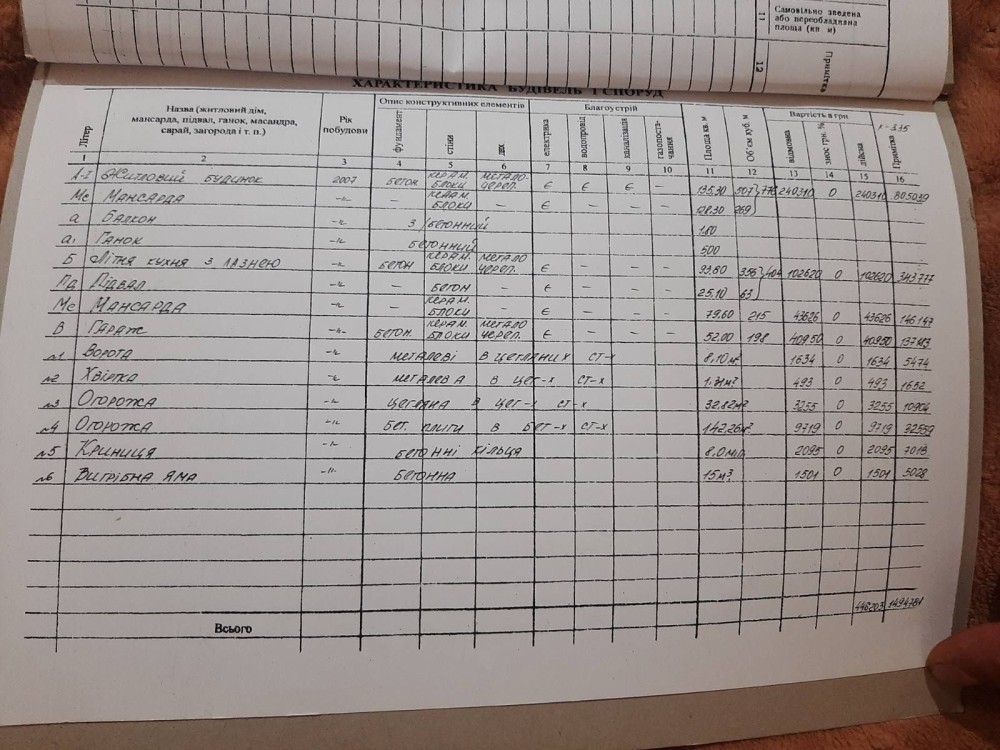 11 Самовільно зведена
або переобладнана
площа (кв м)
12 Примітка
ХАРАКТЕРИСТИКА БУДІВЕЛЬ І СПОРУД
Літер
Назва (житловий дім, мансарда, підвал, ганок, масандра, сарай, загорода і т. п.)
Рік побудови
Опис конструктивних елементів
фундамент стіни дах
Благоустрій
електрика водопровід каналізація газопостачання
Площа кв. м
Об'єм куб. м
Вартість в грн.
відмовна знос грн. % дійсна
Примітка
1 2 3 4 5 6 7 8 9 10 11 12 13 14 15 16
А-I Житловий будинок 2007 бетон керам. блоки метало-череп. є є є – 195.30 507 776 240310 0 240310 805039
Мс Мансарда -"- – керам. блоки – є – – – 128.30 269
а Балкон -"- з/бетонний 1.80
а₁ Ганок -"- бетонний 5.00
Б Літня кухня з лазнею -"- бетон керам. блоки метало череп. є – – – 99.80 102620 0 102620 343777
Пд Підвал -"- – бетон – є – – – 25.10 63
Мс Мансарда -"- – керам. блоки – є – – – 79.60 215 43626 0 43626 146147
В Гараж -"- бетон. керам. блоки метало череп. є – – – 52.00 198 40950 0 40950
№1 Ворота -"- металеві в цегляних ст-х 8.10 м² 1634 0 1634 5474
№2 Хвіртка -"- металева в цег-х ст-х 493 0 493 1652
№3 Огорожа -"- цегляна в цег-х ст-х 32.82 м² 3255 0 3255 10904
№4 Огорожа -"- бет. плити в бет-х ст-х 142.26 м² 9719 0 9719 32559
№5 Криниця -"- бетонні кільця 8.0 м.п. 2095 0 2095 7018
№6 Вигрібна яма -"- бетонна 15 м³ 1501 0 1501 5028
Всього 446203 1494781